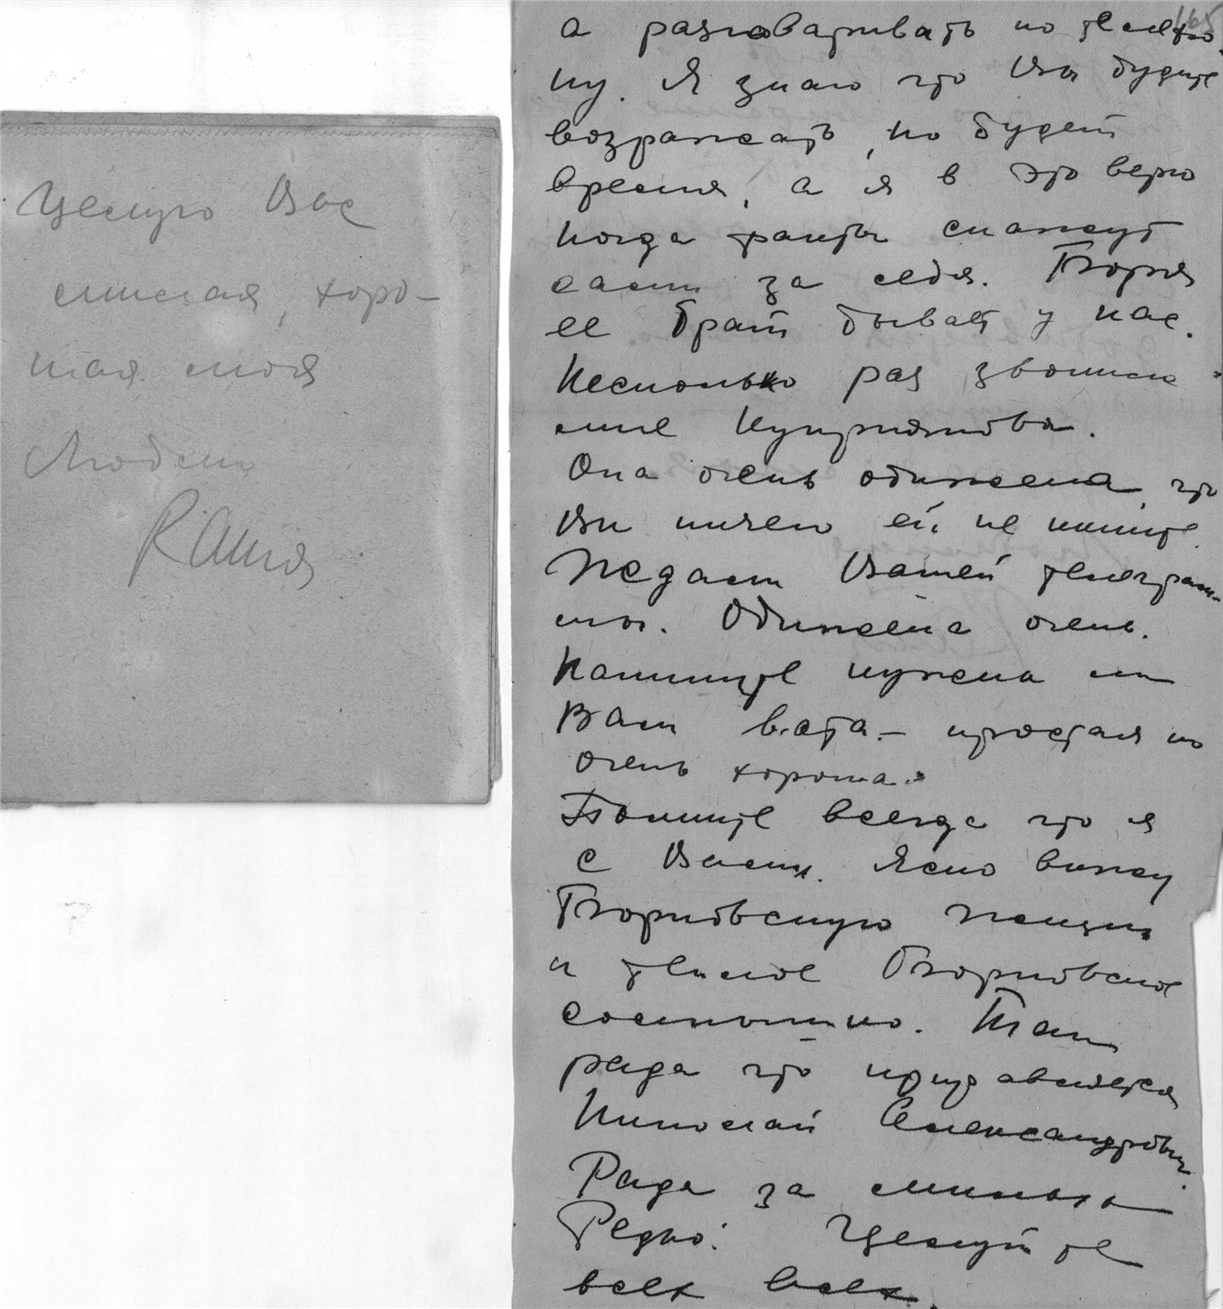 Целую Вас
милая, хоро-
шая моя
Любящ
Раиса
165
а разговаривать по телефо
ну. Я знаю что Вы будете
возражать, но будет
время, а я в это верю
когда факты скажут
сами за себя. Боря
ее брат бывает у нас.
Несколько раз звонила
мне Куприянова.
Она очень обижена, что
Вы ничего ей не пишете.
Ждем Вашей телеграм-
мы. Обижена очень.
Напишите нужна ли
Вам вата – простая но
очень хорошая
Помните всегда что я
с Вами. Ясно вижу
и
Там
рада что поправляется
Николай Александрович.
Рада за
Целуйте
всех всех.